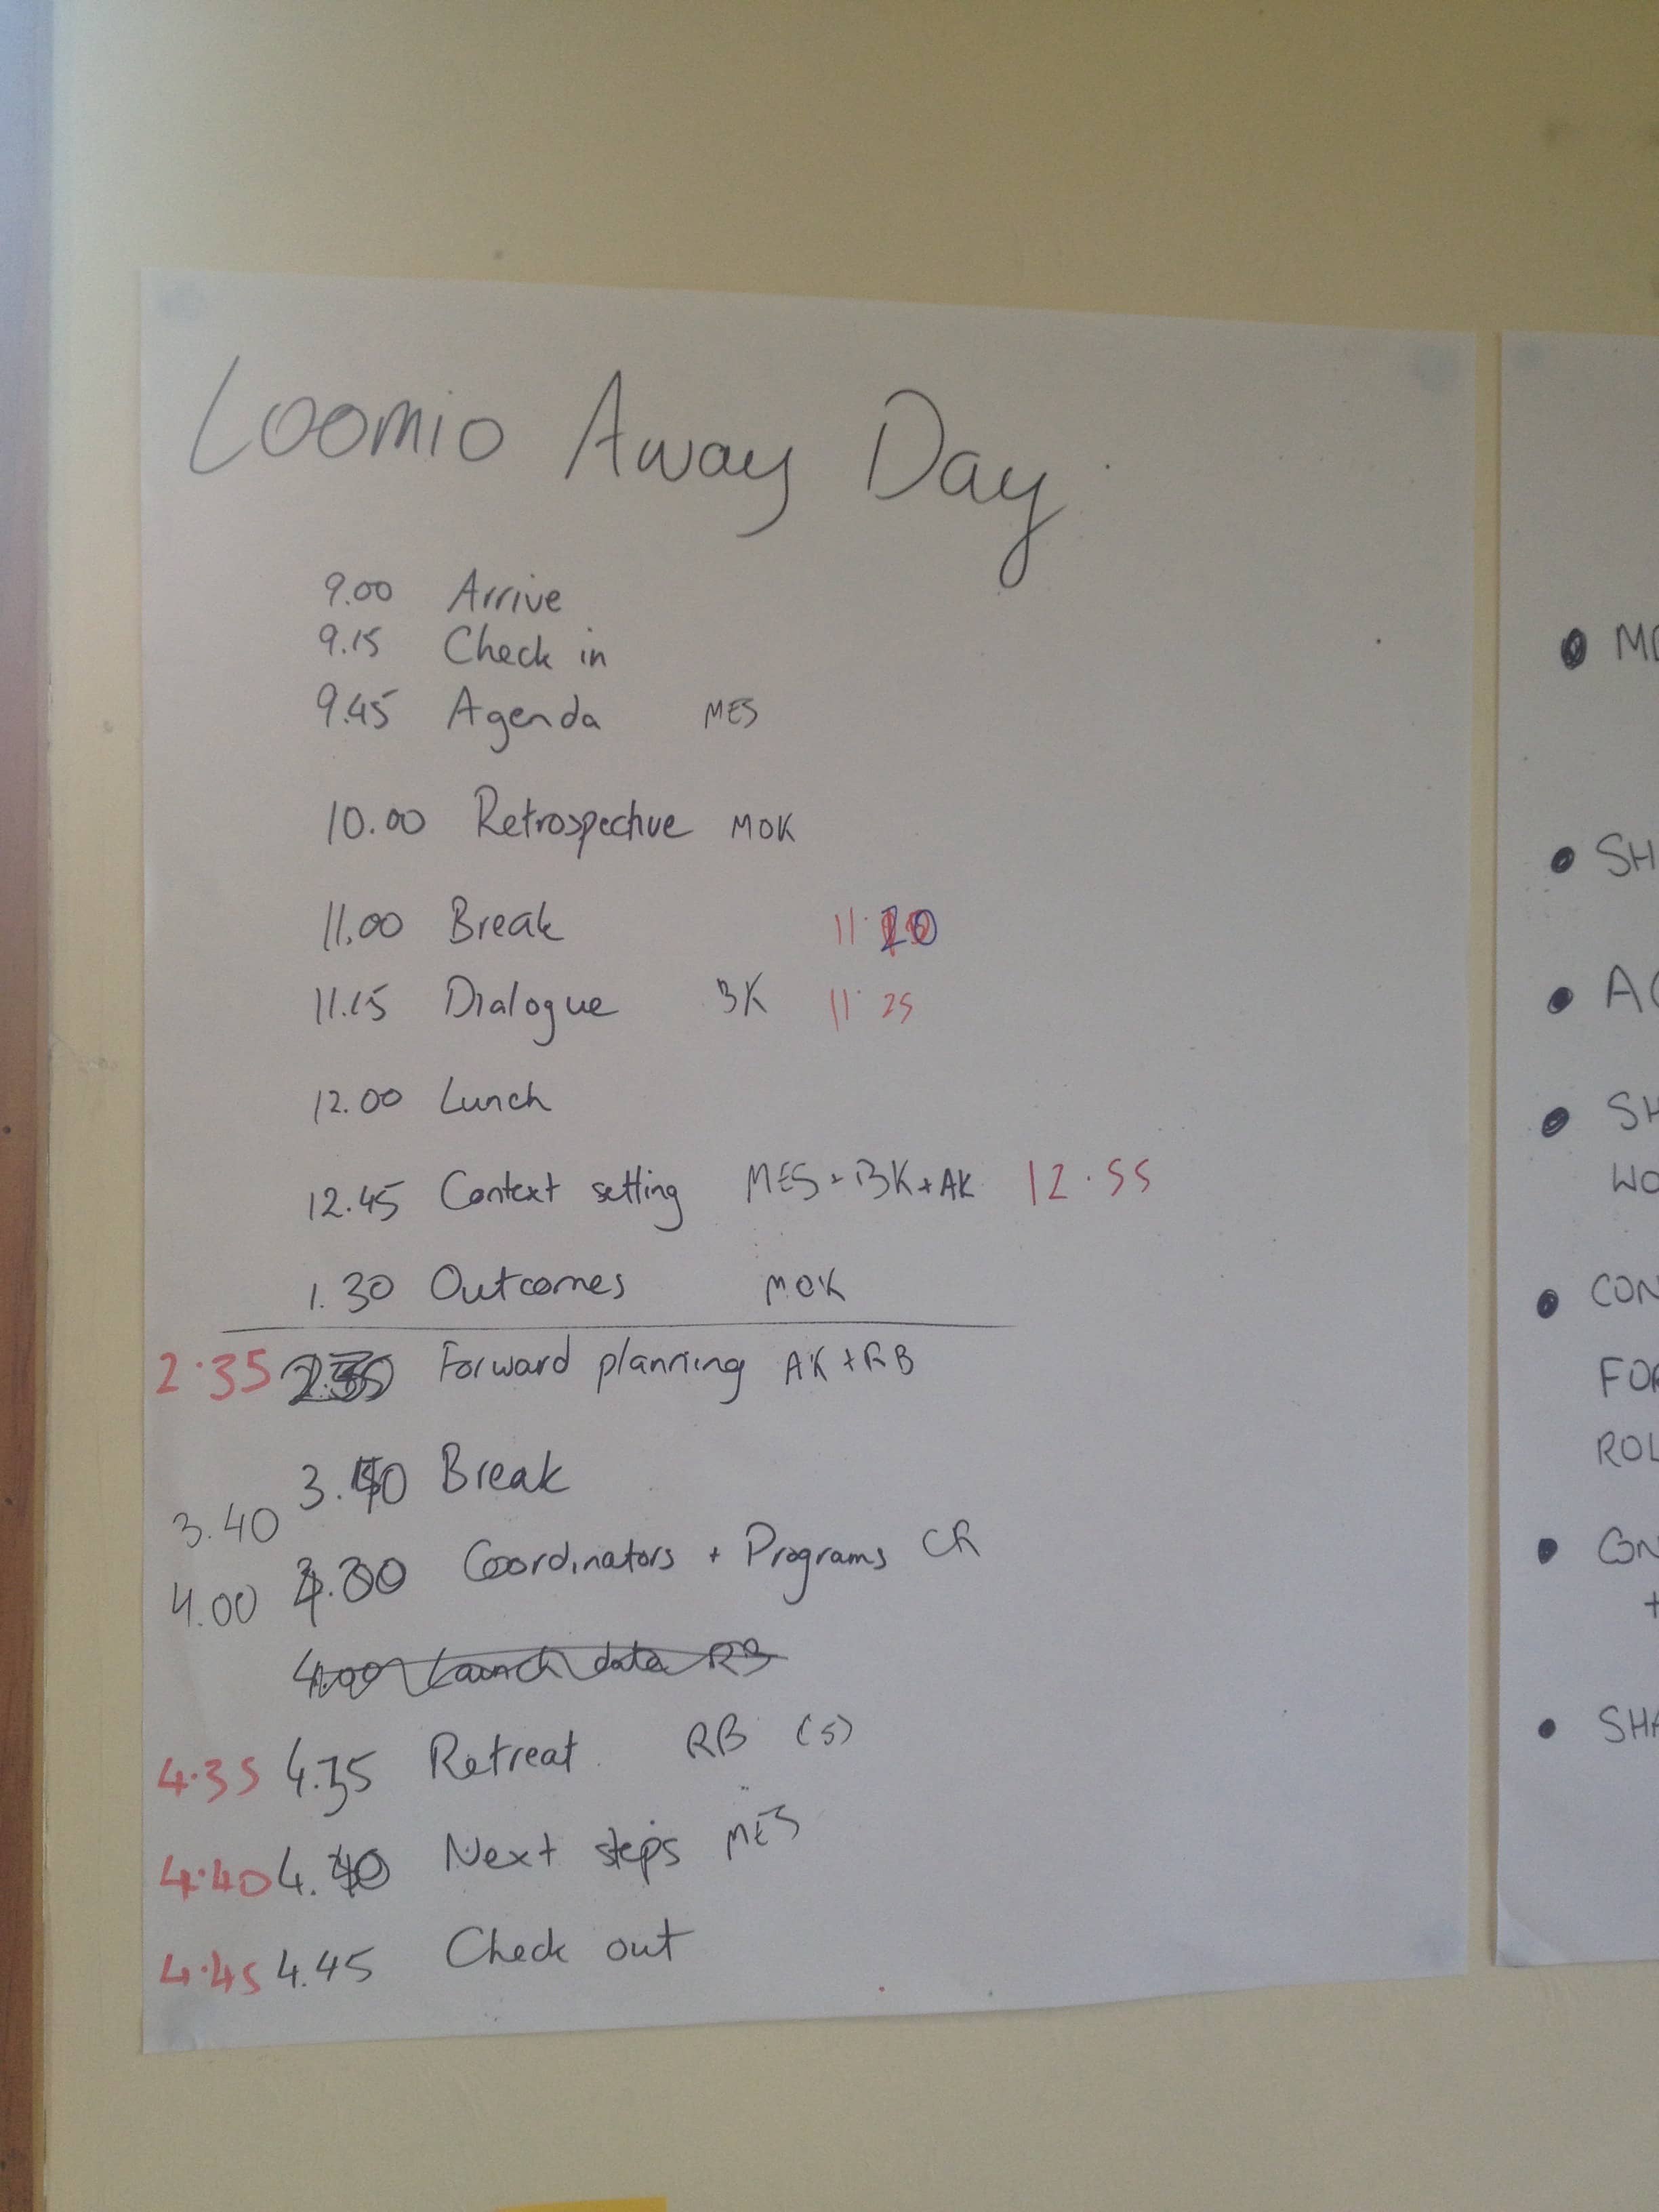 Loomio Away Day
9.00 Arrive
9.15 Check in
9.45 Agenda MES
10.00 Retrospective MOK
11.00 Break 11.20
11.15 Dialogue BK 11.25
12.00 Lunch
12.45 Context setting MES + BK + AK 12.55
1.30 Outcomes MOK
2.35 Forward planning AK + RB
Break
3.40
Coordinators + Programs CR
4.00
4.00 Launch data RB
4.35 4.35 Retreat RB (5)
4.40 4.40 Next steps MES
4.45 4.45 Check out
SH
CON
FOR
ROL
CON
+
SHA